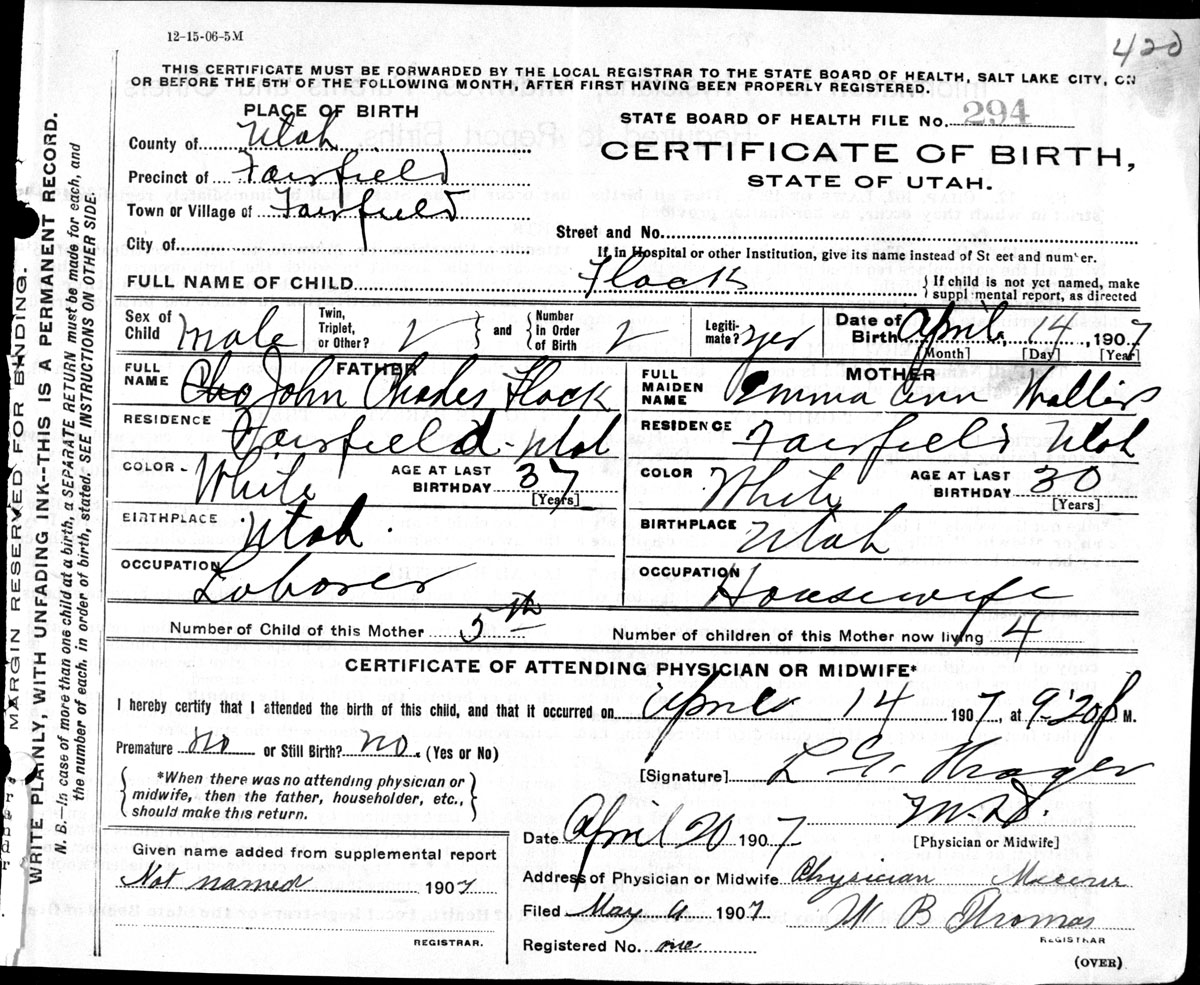 12-15-06-5M
420
THIS CERTIFICATE MUST BE FORWARDED BY THE LOCAL REGISTRAR TO THE STATE BOARD OF HEALTH, SALT LAKE CITY, ON
OR BEFORE THE 5TH OF THE FOLLOWING MONTH, AFTER FIRST HAVING BEEN PROPERLY REGISTERED.
PLACE OF BIRTH
STATE BOARD OF HEALTH FILE No. 294
County of Utah
CERTIFICATE OF BIRTH,
Precinct of Fairfield
STATE OF UTAH.
Town or Village of Fairfield
Street and No.
City of
If in Hospital or other Institution, give its name instead of St eet and number.
FULL NAME OF CHILD Flack
{ If child is not yet named, make
suppl mental report, as directed
Sex of Child male
Twin, Triplet, or Other?
and
{ Number in Order of Birth
Legiti-mate? yes
Date of Birth April, 14, 1907
[Month] [Day] [Year]
FATHER
FULL NAME John Charles Flack
RESIDENCE Fairfield Utah
COLOR - White
AGE AT LAST BIRTHDAY 37
[Years]
BIRTHPLACE Utah
OCCUPATION Laborer
MOTHER
FULL MAIDEN NAME Emma Ann
RESIDENCE Fairfield Utah
COLOR White
AGE AT LAST BIRTHDAY 30
[Years]
BIRTHPLACE Utah
OCCUPATION Housewife
Number of Child of this Mother 5th
Number of children of this Mother now living 4
CERTIFICATE OF ATTENDING PHYSICIAN OR MIDWIFE*
I hereby certify that I attended the birth of this child, and that it occurred on April 14 1907, at 9:20 P M.
Premature no or Still Birth? no. (Yes or No)
[Signature] L G
M.D.
[Physician or Midwife]
{ *When there was no attending physician or
midwife, then the father, householder, etc.,
should make this return. }
Date April 20 1907
Given name added from supplemental report
Not named 1907
REGISTRAR.
Address of Physician or Midwife Physician Mercur
Filed May 1907 W B Thomas
REGISTRAR
Registered No. one
(OVER)
MARGIN RESERVED FOR BINDING.
WRITE PLAINLY, WITH UNFADING INK--THIS IS A PERMANENT RECORD.
N. B.—In case of more than one child at a birth, a SEPARATE RETURN must be made for each, and
the number of each, in order of birth, stated. SEE INSTRUCTIONS ON OTHER SIDE.